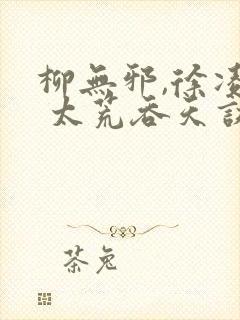 柳無邪,徐凌
太荒吞天訣
茶兔